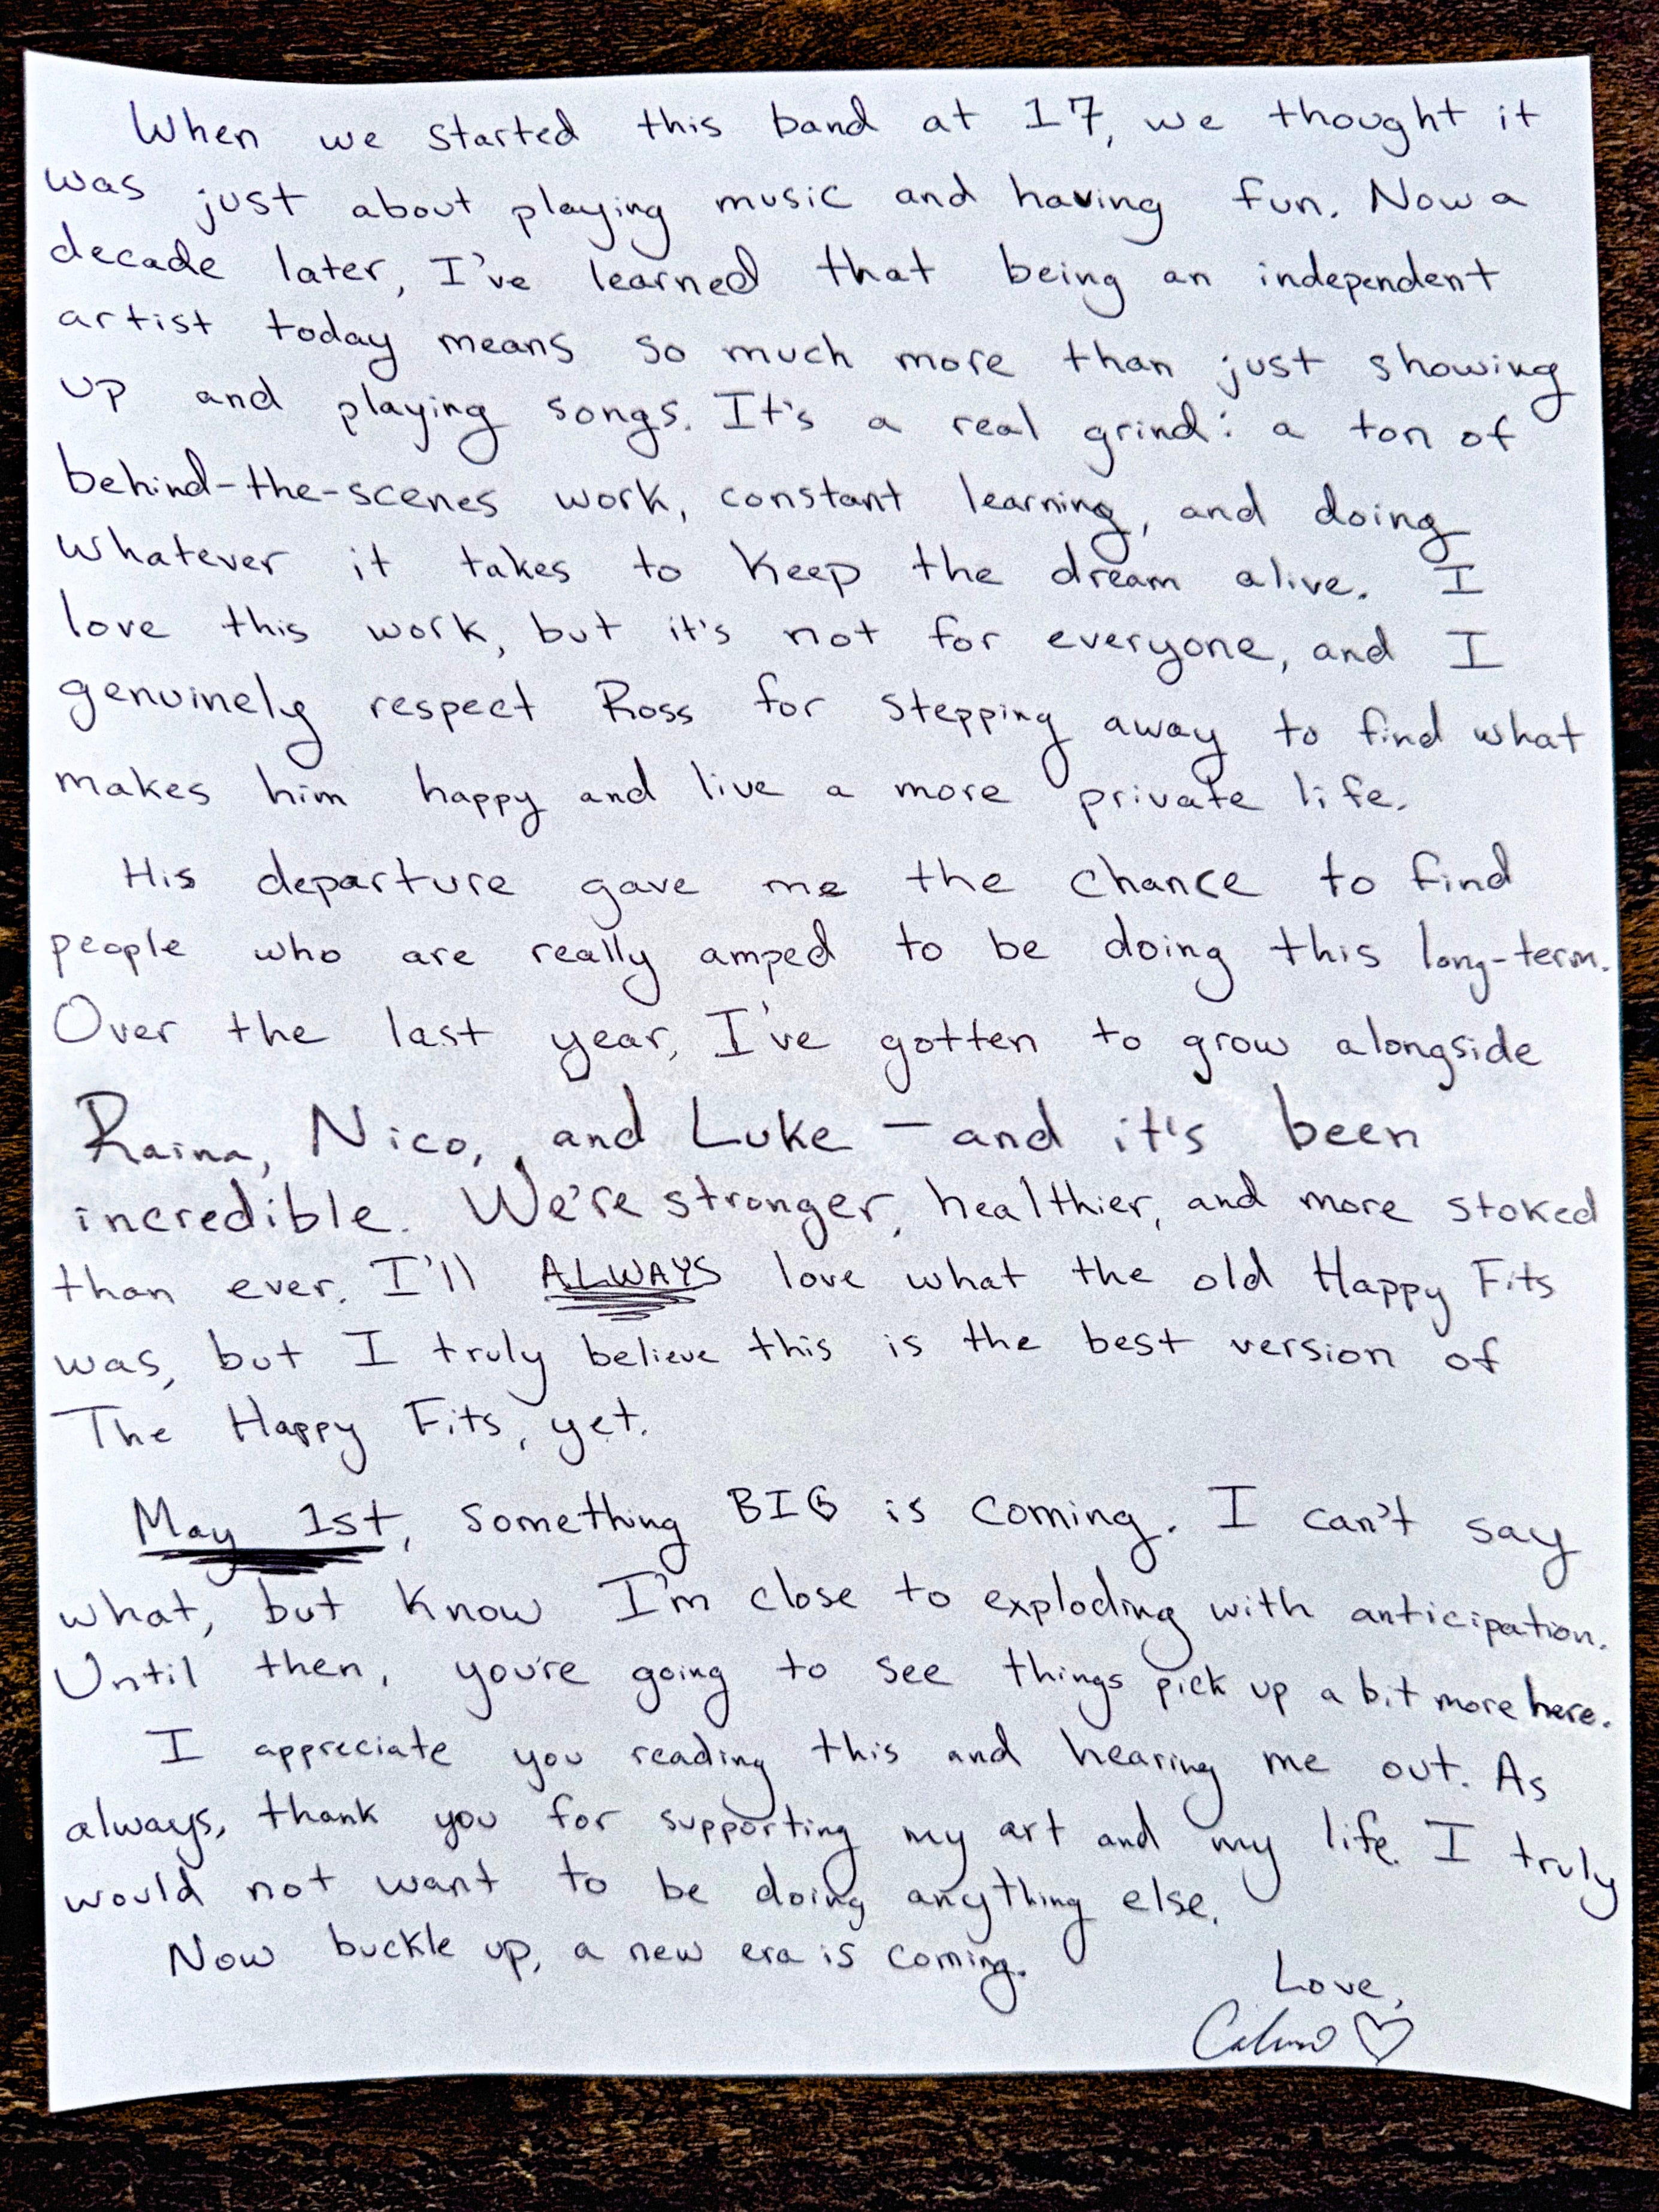 When we started this band at 17, we thought it
was just about playing music and having fun. Now a
decade later, I've learned that being an independent
artist today means so much more than just showing
up and playing songs. It's a real grind: a ton of
behind-the-scenes work, constant learning, and doing
whatever it takes to keep the dream alive. I
love this work, but it's not for everyone, and I
genuinely respect Ross for stepping away to find what
makes him happy and live a more private life.
His departure gave me the chance to find
people who are really amped to be doing this long-term.
Over the last year, I've gotten to grow alongside
Raina, Nico, and Luke — and it's been
incredible. We're stronger, healthier, and more stoked
than ever. I'll ALWAYS love what the old Happy Fits
was, but I truly believe this is the best version of
The Happy Fits, yet.
May 1st, something BIG is coming. I can't say
what, but know I'm close to exploding with anticipation.
Until then, you're going to see things pick up a bit more here.
I appreciate you reading this and hearing me out. As
always, thank you for supporting my art and my life. I truly
would not want to be doing anything else.
Now buckle up, a new era is coming.
Love,
Calvin ♡